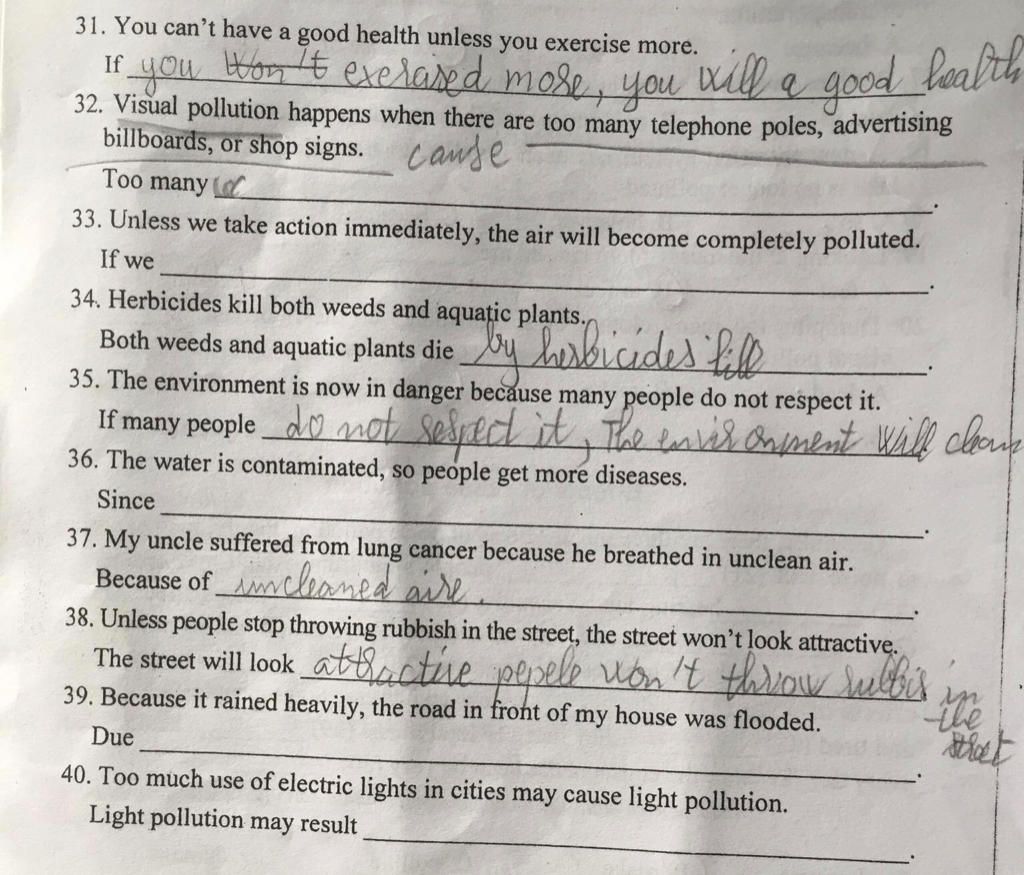 31. You can't have a good health unless you exercise more.
If you won't exerased more, you will a good health
32. Visual pollution happens when there are too many telephone poles, advertising
billboards, or shop signs. cause
Too many
33. Unless we take action immediately, the air will become completely polluted.
If we
34. Herbicides kill both weeds and aquatic plants.
Both weeds and aquatic plants die by herbicides kill
35. The environment is now in danger because many people do not respect it.
If many people do not respect it, The environment will clean
36. The water is contaminated, so people get more diseases.
Since
37. My uncle suffered from lung cancer because he breathed in unclean air.
Because of uncleaned aire.
38. Unless people stop throwing rubbish in the street, the street won't look attractive.
The street will look attractive pepele won't throw rubbis in
the
street
39. Because it rained heavily, the road in front of my house was flooded.
Due
40. Too much use of electric lights in cities may cause light pollution.
Light pollution may result